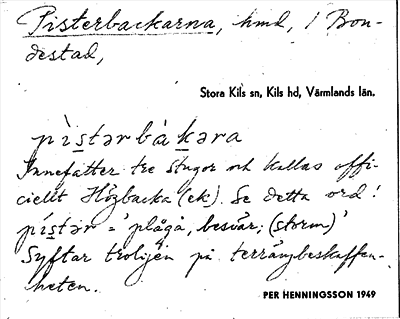 Pisterbackarna, hmd, i Bon-
destad,
Stora Kils sn, Kils hd, Värmlands län.
pìstərbàkəra
Innefattar tre stugor och kallas offi-
ciellt Högbacka (ek). Se detta ord!
pístər = 'plåga, besvär; (storm)'
Syftar troligen på terrängbeskaffen-
heten.
PER HENNINGSSON 1949